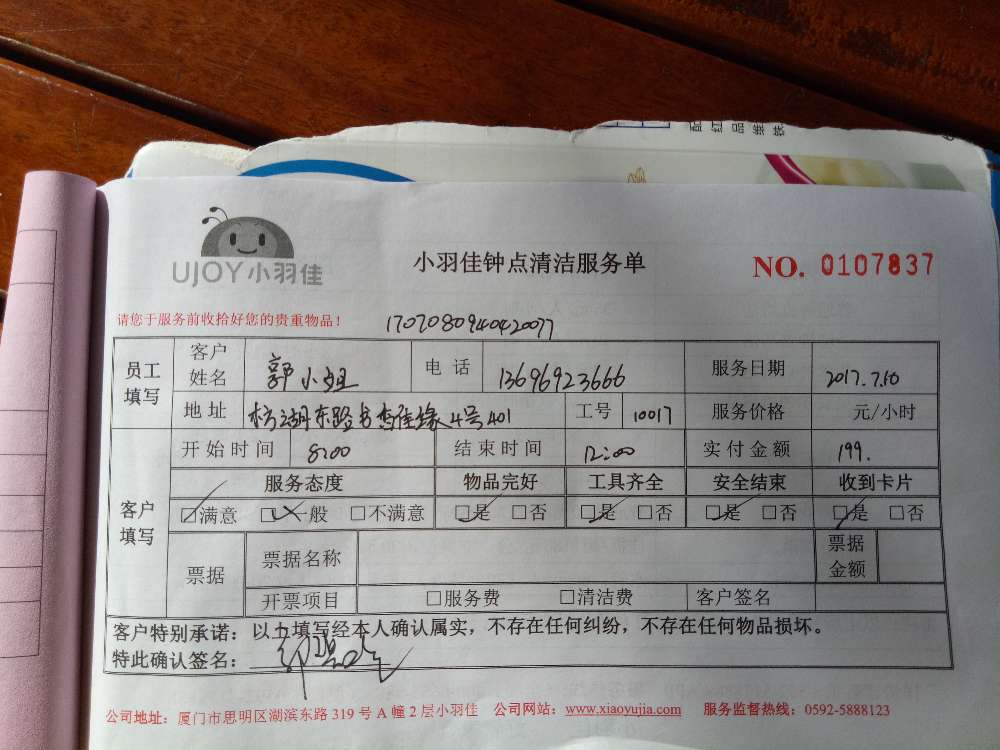 UJOY小羽佳
小羽佳钟点清洁服务单
NO. 0107837
请您于服务前收拾好您的贵重物品！
员工填写 客户姓名 郭小姐 电话 13696923666 服务日期 2017.7.10
地址 东路书香佳缘4号401 工号 10017 服务价格 元/小时
客户填写 开始时间 8:00 结束时间 12:00 实付金额 199.
服务态度 物品完好 工具齐全 安全结束 收到卡片
☑满意 ☑一般 □不满意 ☑是 □否 ☑是 □否 ☑是 □否 ☑是 □否
票据 票据名称 票据金额
开票项目 □服务费 □清洁费 客户签名
客户特别承诺：以上填写经本人确认属实，不存在任何纠纷，不存在任何物品损坏。
特此确认签名：
公司地址：厦门市思明区湖滨东路 319 号 A 幢 2 层小羽佳 公司网站：www.xiaoyujia.com 服务监督热线：0592-5888123